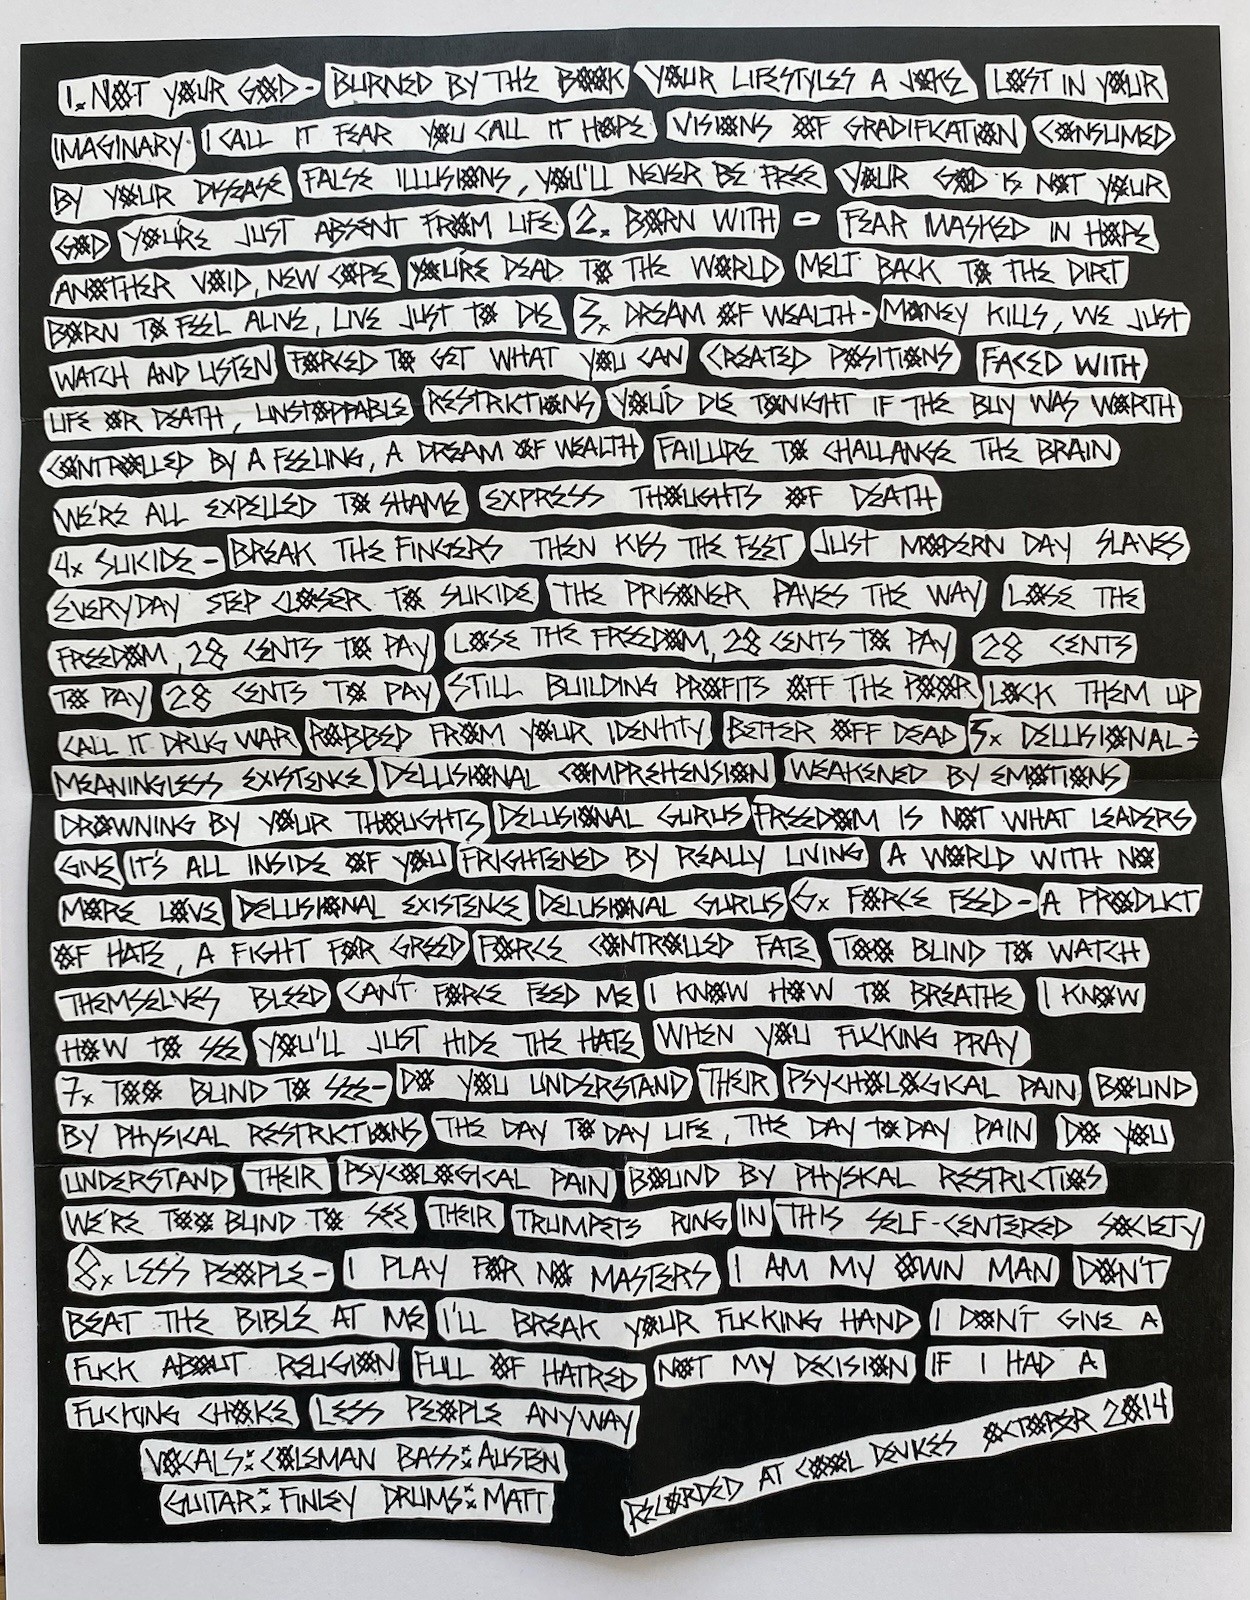 1. NOT YOUR GOD - BURNED BY THE BOOK YOUR LIFESTYLES A JOKE LOST IN YOUR
IMAGINARY I CALL IT FEAR YOU CALL IT HOPE VISIONS OF GRADIFICATION CONSUMED
BY YOUR DISEASE FALSE ILLUSIONS, YOU'LL NEVER BE FREE YOUR GOD IS NOT YOUR
GOD YOU'RE JUST ABSENT FROM LIFE. 2. BORN WITH - FEAR MASKED IN HOPE
ANOTHER VOID, NEW COPE YOU'RE DEAD TO THE WORLD MELT BACK TO THE DIRT
BORN TO FEEL ALIVE, LIVE JUST TO DIE 3x DREAM OF WEALTH - MONEY KILLS, WE JUST
WATCH AND LISTEN FORCED TO GET WHAT YOU CAN CREATED POSITIONS FACED WITH
LIFE OR DEATH, UNSTOPPABLE RESTRICTIONS YOU'D DIE TONIGHT IF THE BUY WAS WORTH
CONTROLLED BY A FEELING, A DREAM OF WEALTH FAILURE TO CHALLANGE THE BRAIN
WE'RE ALL EXPELLED TO SHAME EXPRESS THOUGHTS OF DEATH
4x SUICIDE - BREAK THE FINGERS THEN KISS THE FEET JUST MODERN DAY SLAVES
EVERYDAY STEP CLOSER TO SUICIDE THE PRISONER PAVES THE WAY LOSE THE
FREEDOM, 28 CENTS TO PAY LOSE THE FREEDOM, 28 CENTS TO PAY 28 CENTS
TO PAY 28 CENTS TO PAY STILL BUILDING PROFITS OFF THE POOR LOCK THEM UP
CALL IT DRUG WAR ROBBED FROM YOUR IDENTITY BETTER OFF DEAD 5x DELLUSIONAL -
MEANINGLESS EXISTENCE DELLUSIONAL COMPREHENSION WEAKENED BY EMOTIONS
DROWNING BY YOUR THOUGHTS DELLUSIONAL GURUS FREEDOM IS NOT WHAT LEADERS
GIVE IT'S ALL INSIDE OF YOU FRIGHTENED BY REALLY LIVING A WORLD WITH NO
MORE LOVE DELLUSIONAL EXISTENCE DELLUSIONAL GURUS 6x FORCE FEED - A PRODUCT
OF HATE, A FIGHT FOR GREED FORCE CONTROLLED FATE TOO BLIND TO WATCH
THEMSELVES BLEED CAN'T FORCE FEED ME I KNOW HOW TO BREATHE I KNOW
HOW TO SEE YOU'LL JUST HIDE THE HATE WHEN YOU FUCKING PRAY
7x TOO BLIND TO SEE - DO YOU UNDERSTAND THEIR PSYCHOLOGICAL PAIN BOUND
BY PHYSICAL RESTRICTIONS THE DAY TO DAY LIFE, THE DAY TO DAY PAIN DO YOU
UNDERSTAND THEIR PSYCOLOGICAL PAIN BOUND BY PHYSICAL RESTRICTIOS
WE'RE TOO BLIND TO SEE THEIR TRUMPETS RING IN THIS SELF-CENTERED SOCIETY
8x LESS PEOPLE - I PLAY FOR NO MASTERS I AM MY OWN MAN DON'T
BEAT THE BIBLE AT ME I'LL BREAK YOUR FUCKING HAND I DON'T GIVE A
FUCK ABOUT RELIGION FULL OF HATRED NOT MY DECISION IF I HAD A
FUCKING CHOKE LESS PEOPLE ANYWAY
VOCALS: COLEMAN BASS: AUSTEN
GUITAR: FINLEY DRUMS: MATT
RECORDED AT COOL DEVICES OCTOBER 2014